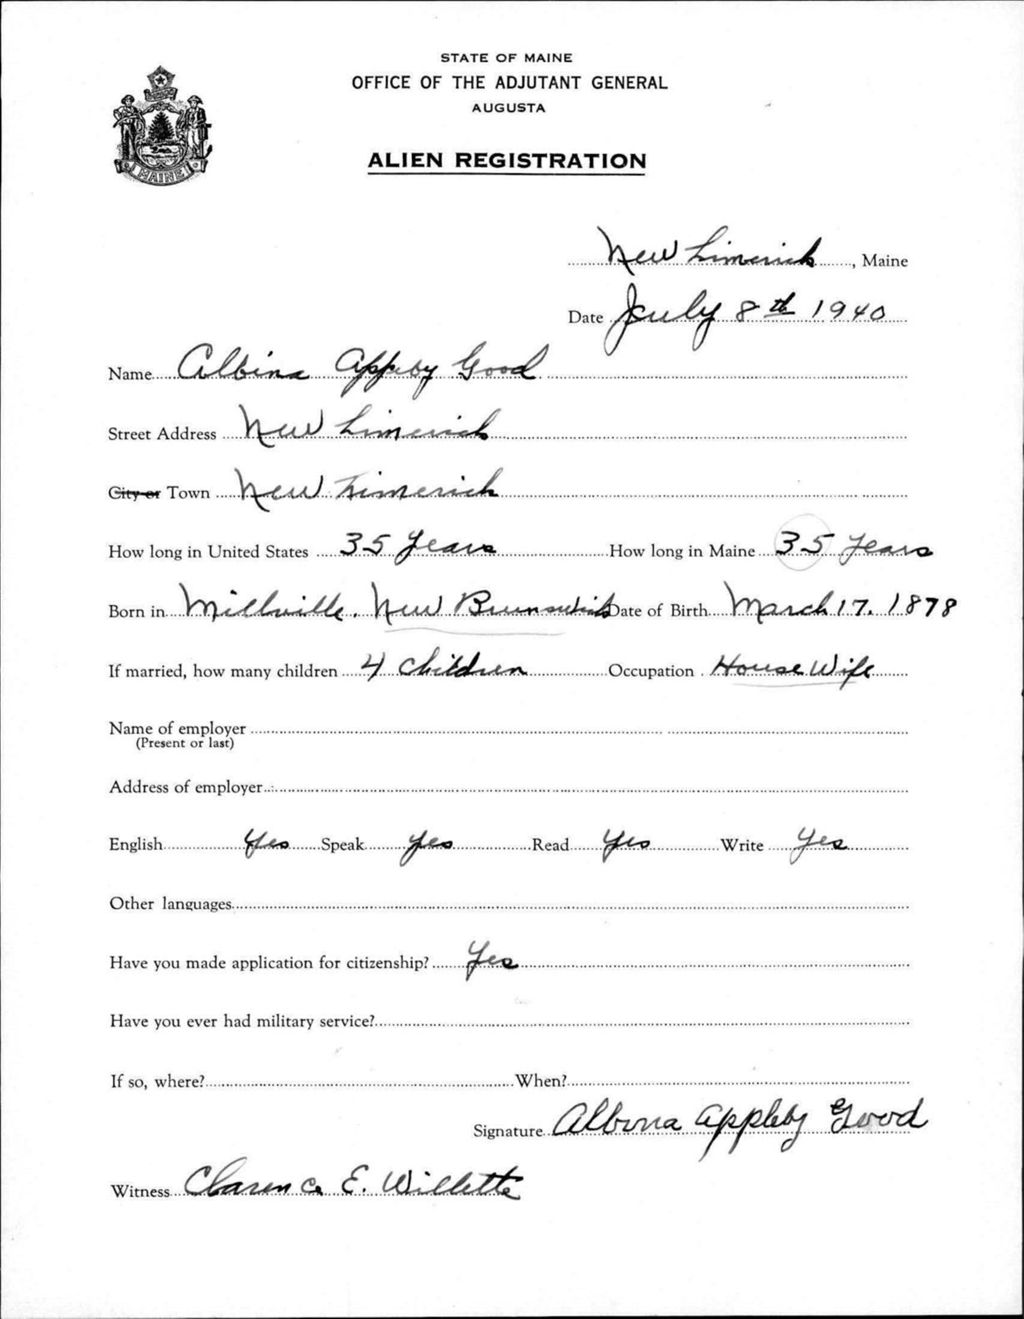 STATE OF MAINE
OFFICE OF THE ADJUTANT GENERAL
AUGUSTA
MAINE
ALIEN REGISTRATION
New Limerick, Maine
Date July 8th 1940
Name Albina Appleby Good
Street Address New Limerick
City or Town New Limerick
How long in United States 35 Years How long in Maine 35 Years
Born in Millville, New Brunswick Date of Birth March 17. 1878
If married, how many children 4 children Occupation House Wife
Name of employer
(Present or last)
Address of employer
English Yes Speak Yes Read Yes Write Yes
Other languages
Have you made application for citizenship? Yes
Have you ever had military service?
If so, where? When?
Signature Albina Appleby Good
Witness Clarence E. Willette